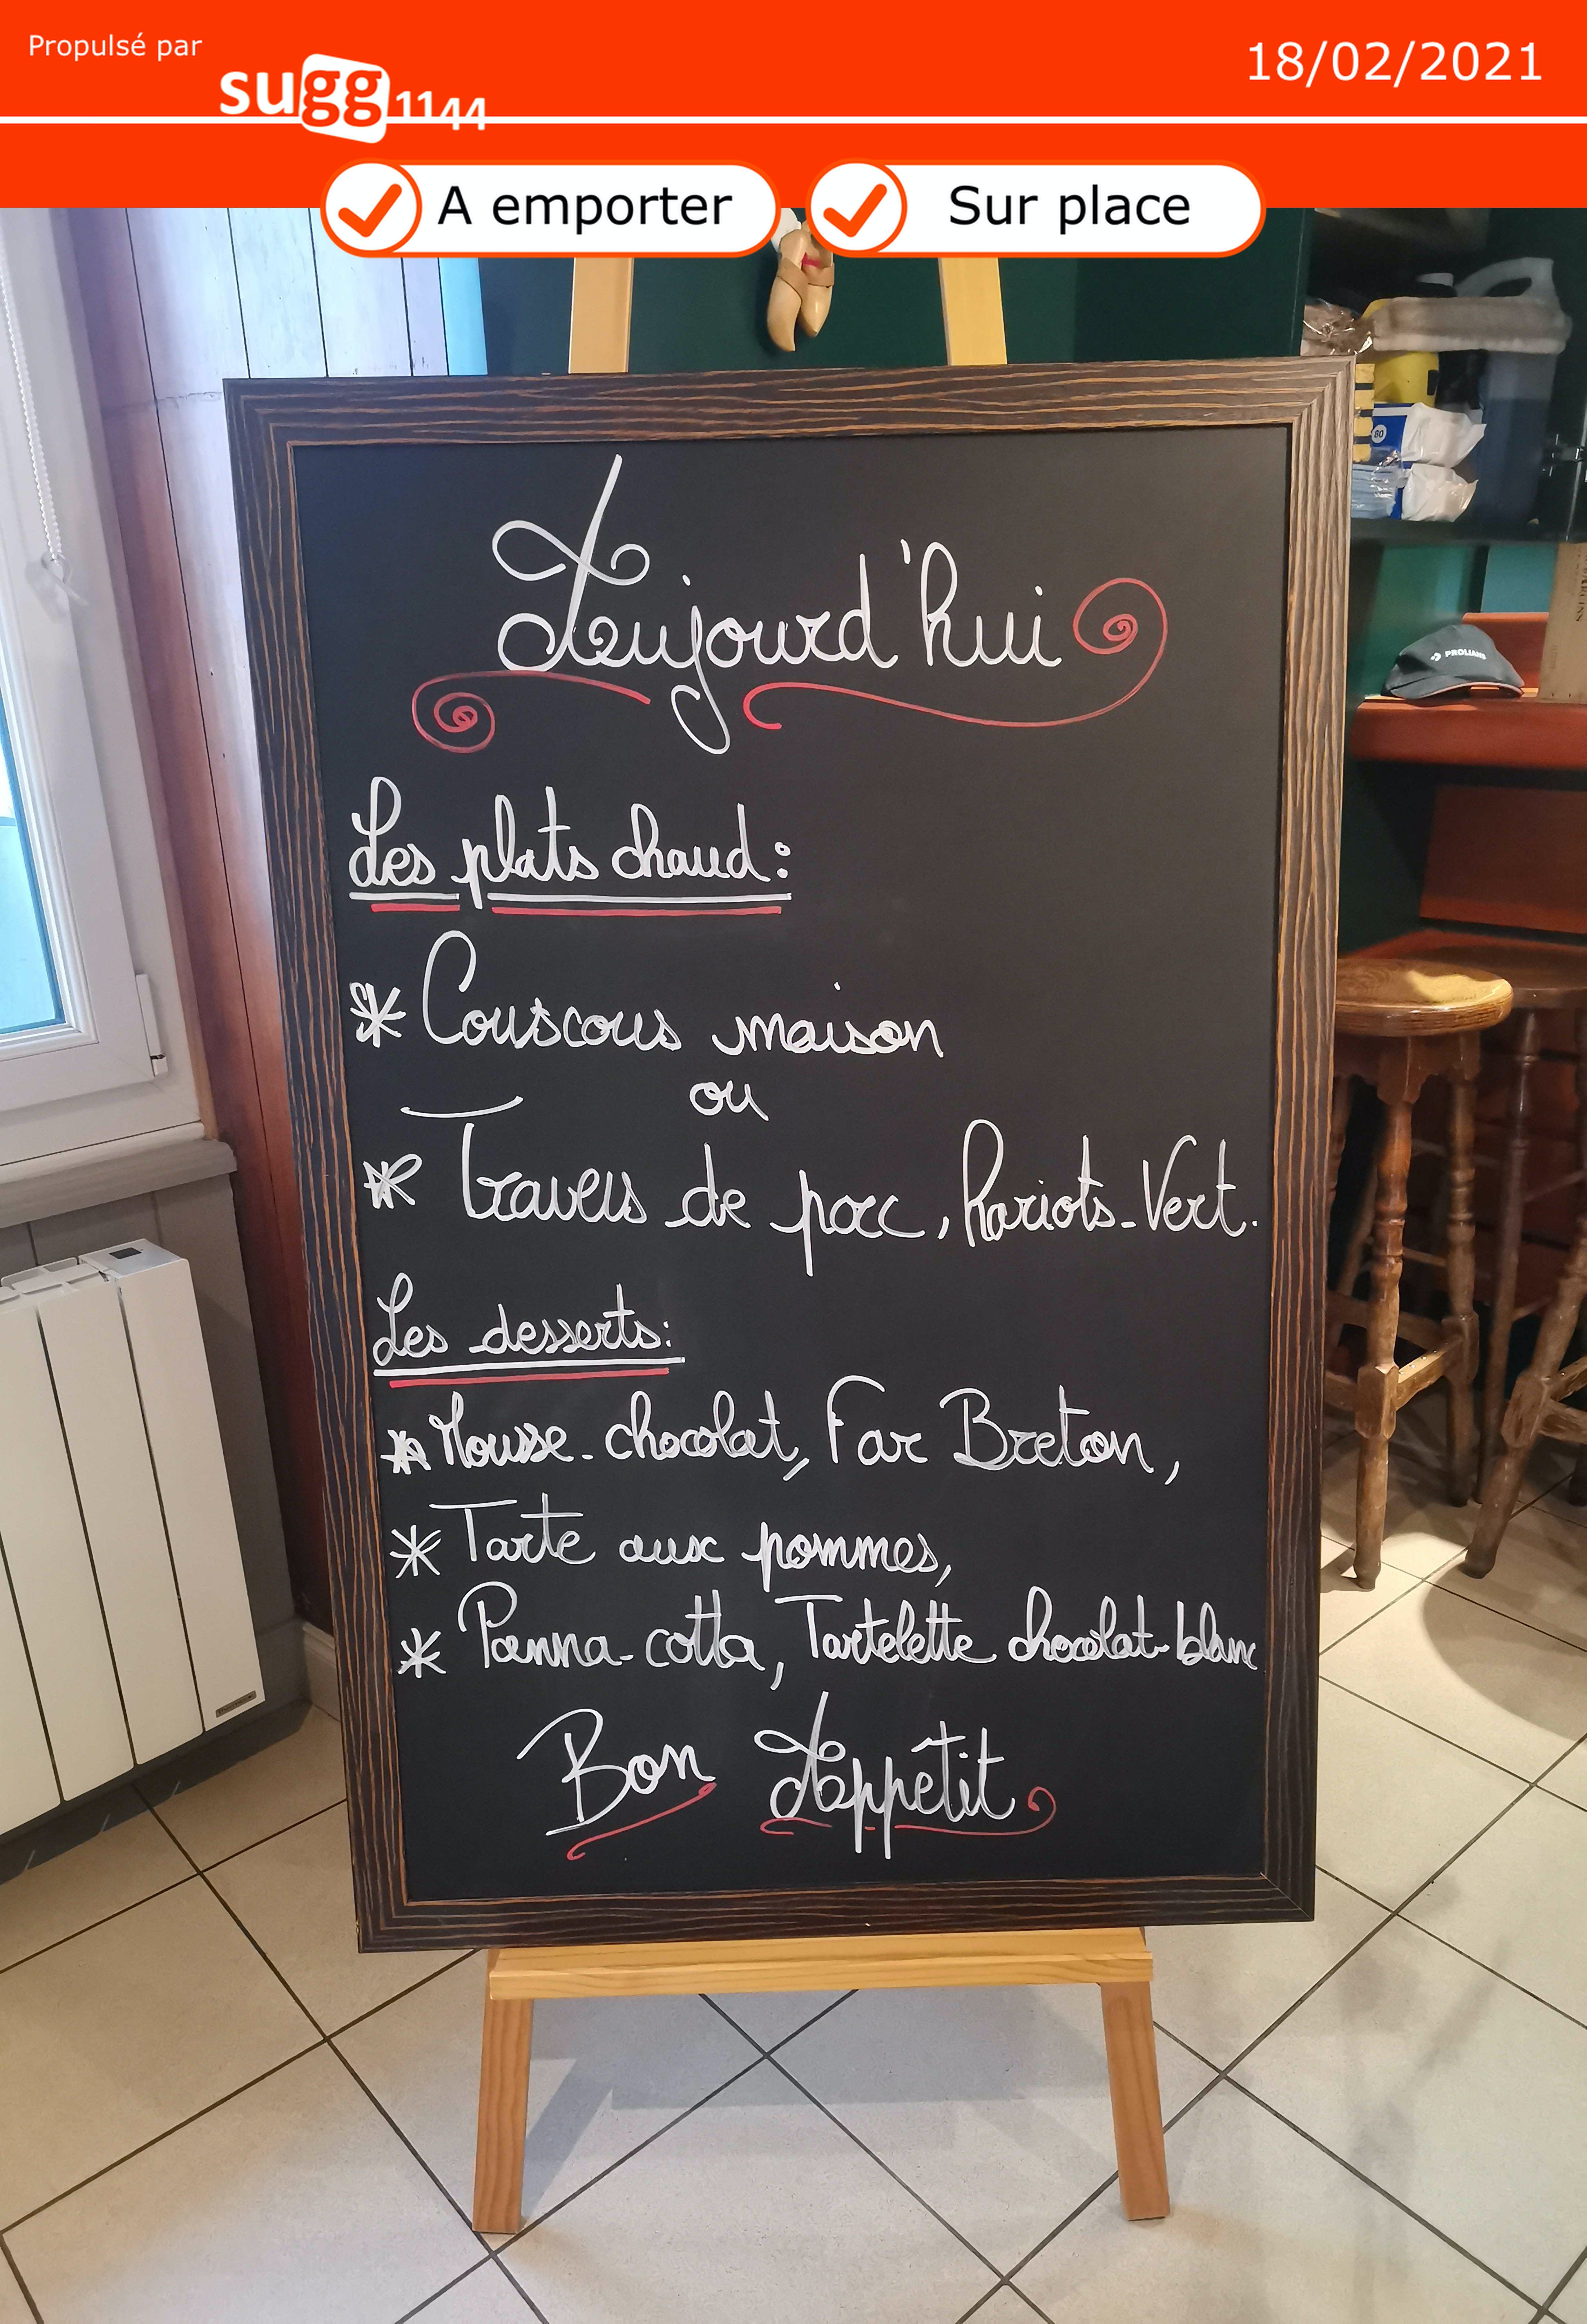 Propulsé par
sugg1144
18/02/2021
A emporter
Sur place
80
PROLIANS
Aujourd'hui
Les plats chaud :
* Couscous maison
ou
* Travers de porc, hariots-Vert.
Les desserts :
* Mousse-chocolat, Far Breton,
* Tarte aux pommes,
* Panna-cotta, Tartelette chocolat-blanc
Bon Appêtit